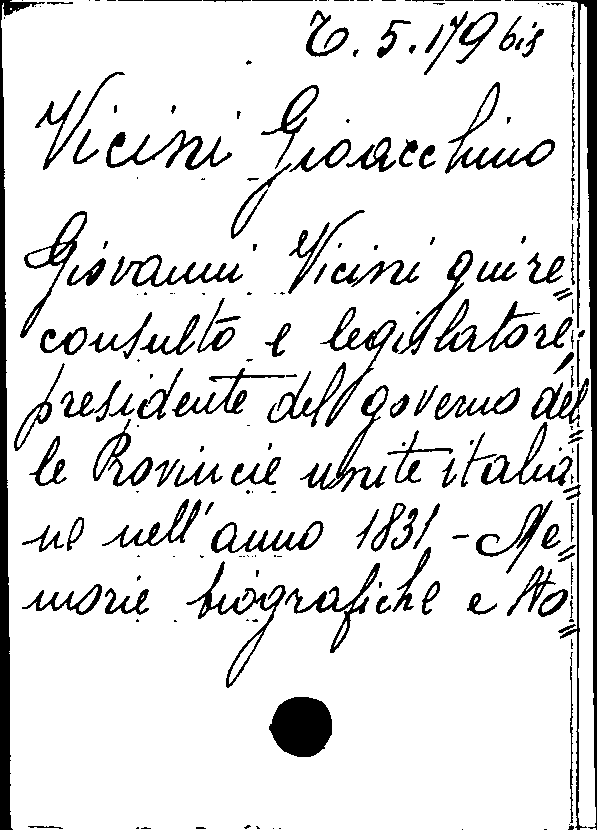 C. 5. 179 bis
Vicini Gioacchino
Giovanni Vicini giure=
consulto e legislatore;
presidente del governo del=
le Provincie unite italia=
ne nell'anno 1831 - Me=
morie biografiche e sto=